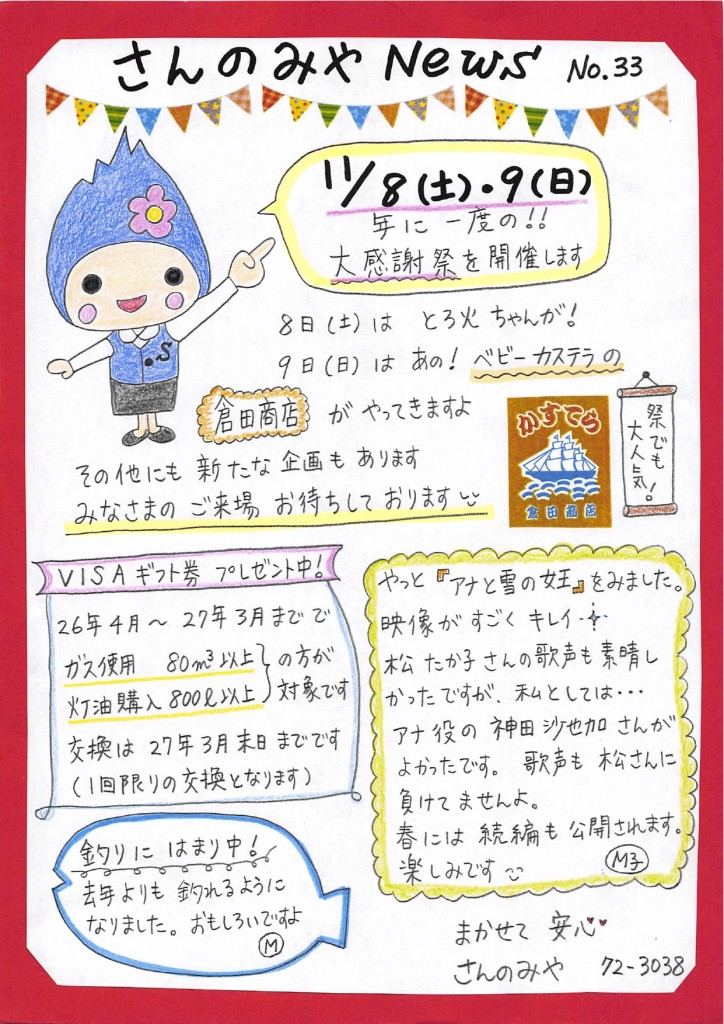 さんのみや News No.33
11/8(土)・9(日)
年に一度の!!
大感謝祭を開催します
8日(土)は とろ火 ちゃんが!
9日(日)は あの! ベビーカステラの
倉田商店 が やってきますよ
かすてら
倉田商店
祭でも
大人気!
その他にも 新たな 企画も あります
みなさまの ご来場 お待ちしております
VISAギフト券 プレゼント中!
26年4月～ 27年3月までで
ガス使用 80m³以上
灯油購入 800ℓ以上
の方が
対象です
交換は 27年3月末日までです
(1回限りの交換となります)
やっと『アナと雪の女王』をみました。
映像がすごく キレイ
松たか子さんの歌声も素晴し
かったですが、私としては・・・
アナ役の 神田沙也加さんが
よかったです。 歌声も 松さんに
負けてませんよ。
春には 続編も 公開されます。
楽しみです
M子
釣りに はまり中!
去年よりも 釣れるように
なりました。おもしろいですよ
M
まかせて 安心
さんのみや 72-3038
S